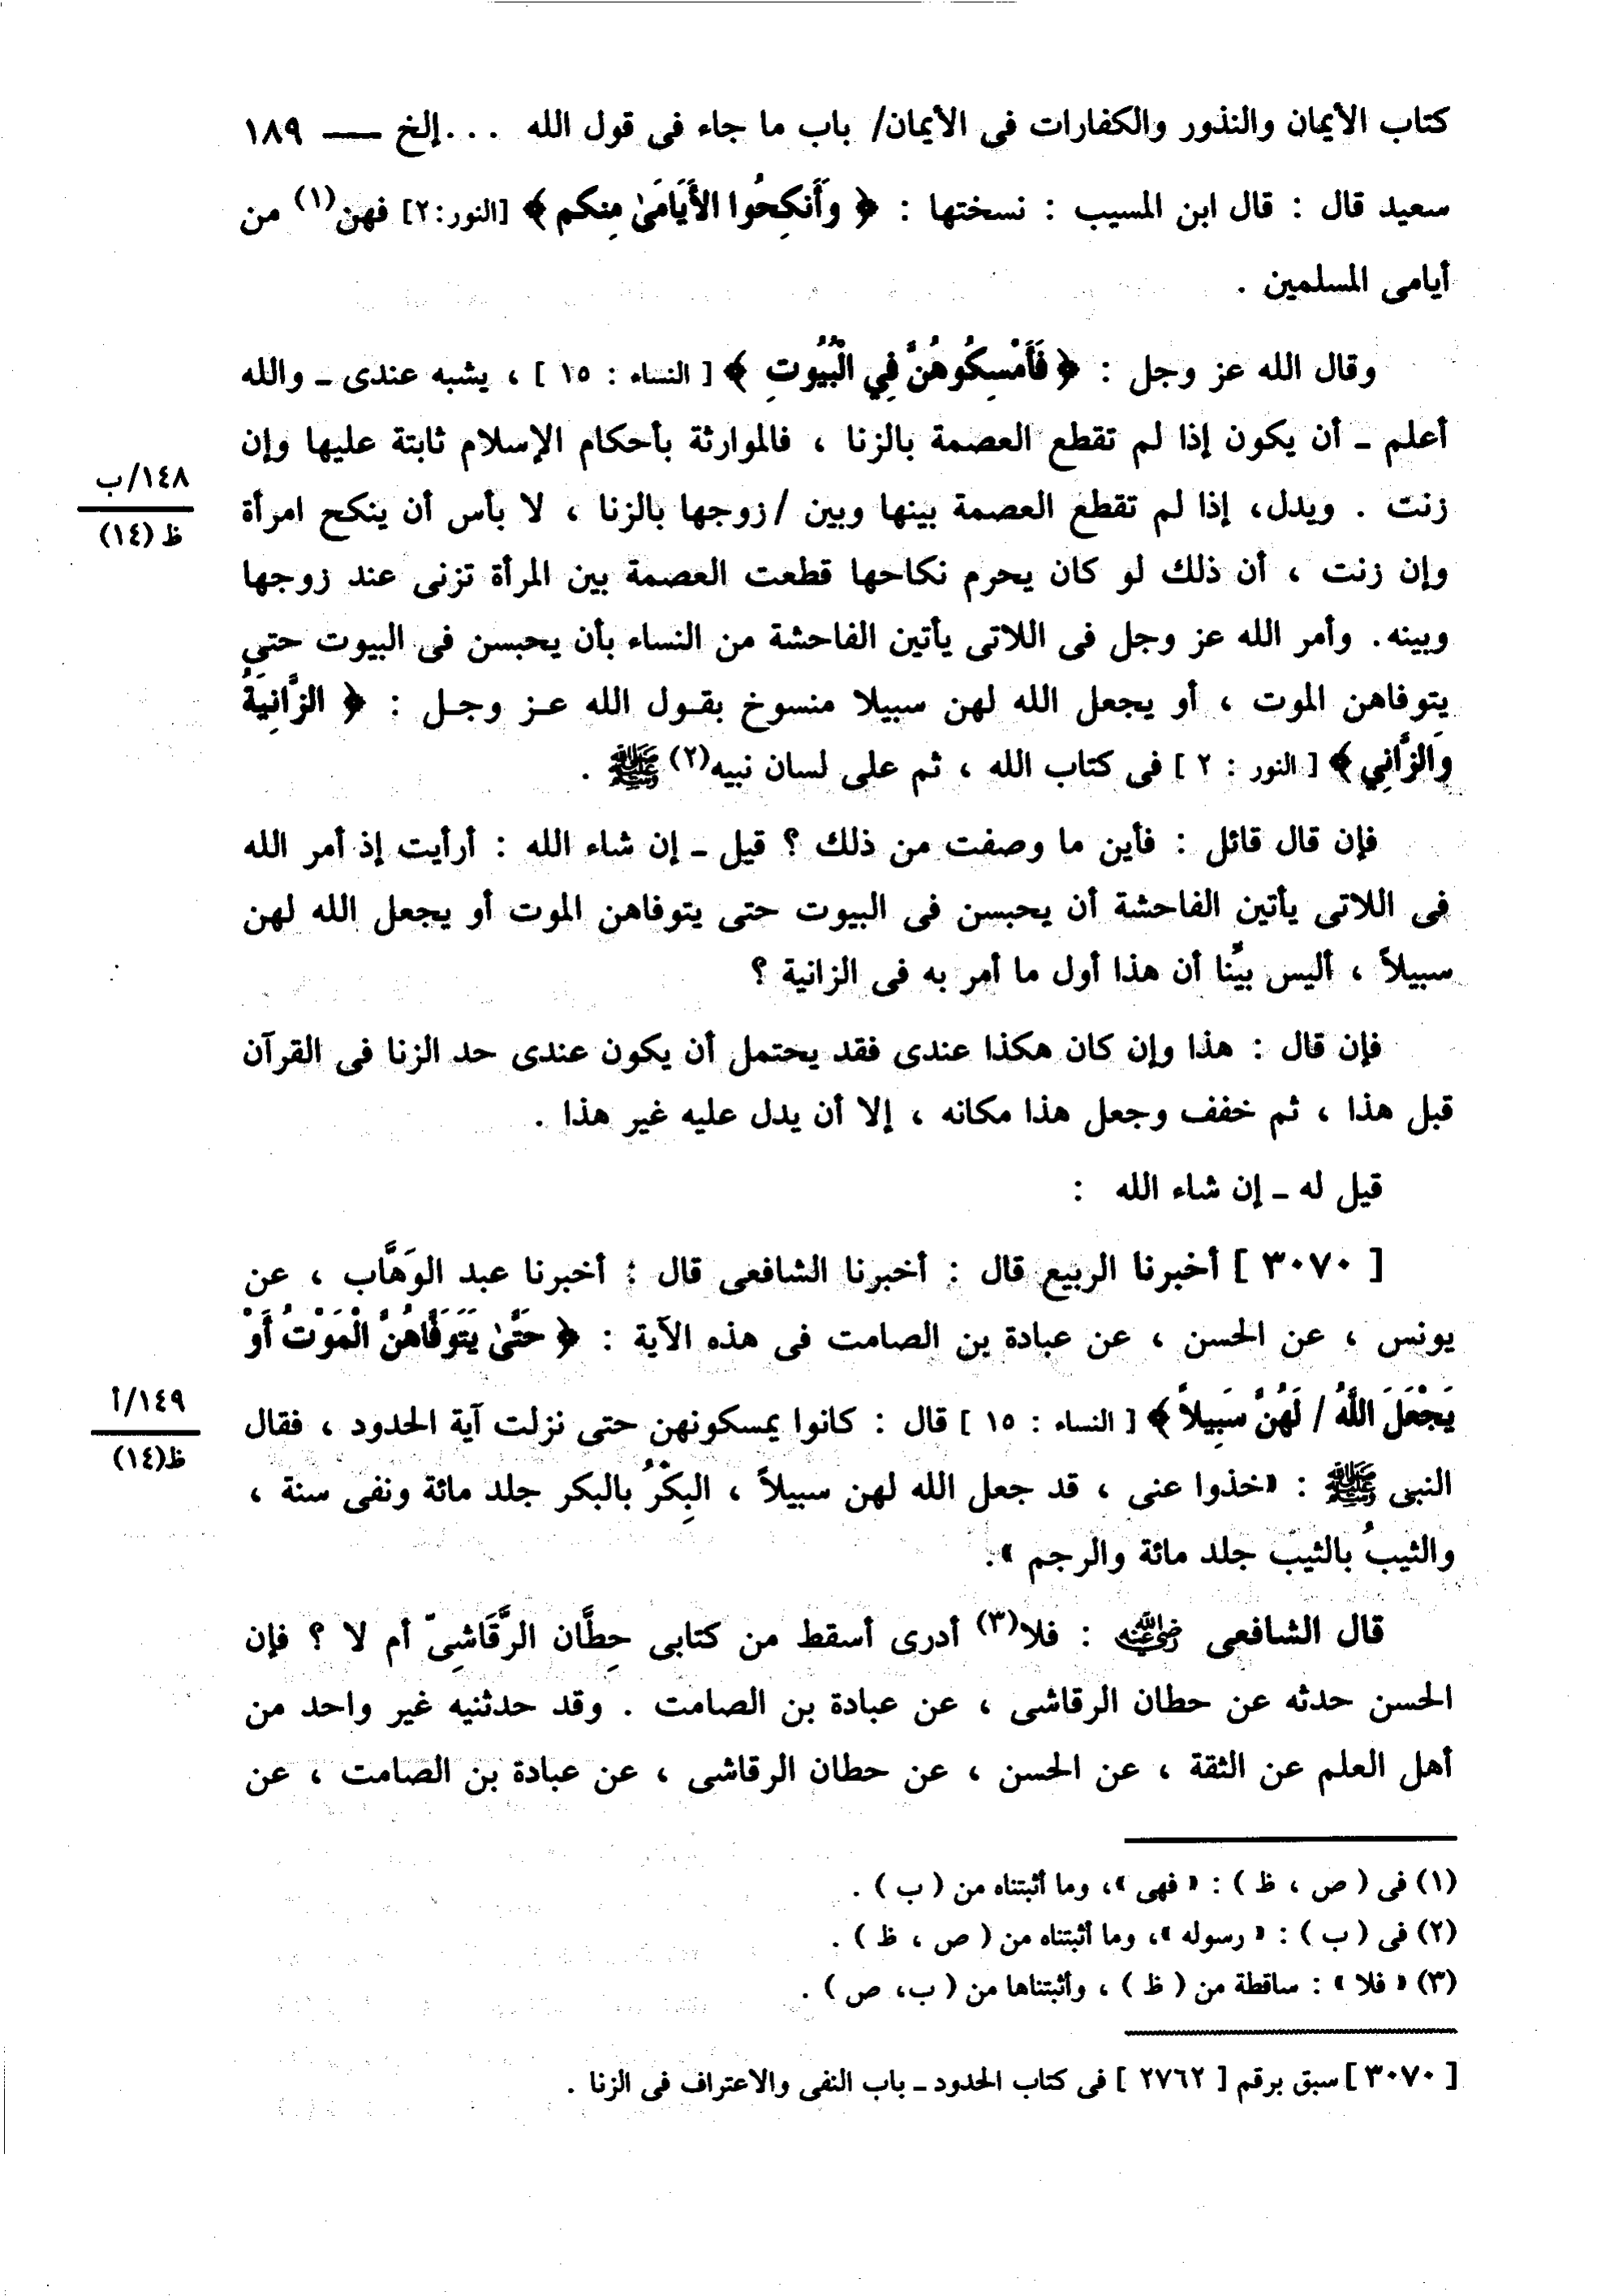 كتاب الأيمان والنذور والكفارات فى الأيمان/ باب ما جاء فى قول الله ...إلخ ــــ ١٨٩
سعيد قال : قال ابن المسيب : نسختها : ﴿ وَأَنكِحُوا الأَيَامَىٰ مِنكم ﴾ [النور:٢] فهن(١) من
أيامى المسلمين .
وقال الله عز وجل : ﴿ فَأَمْسِكُوهُنَّ فِي الْبُيُوتِ ﴾ [ النساء : ١٥ ] ، يشبه عندى ـ والله
أعلم ـ أن يكون إذا لم تقطع العصمة بالزنا ، فالموارثة بأحكام الإسلام ثابتة عليها وإن
١٤٨/ب
ظ (١٤)
زنت . ويدل، إذا لم تقطع العصمة بينها وبين /زوجها بالزنا ، لا بأس أن ينكح امرأة
وإن زنت ، أن ذلك لو كان يحرم نكاحها قطعت العصمة بين المرأة تزنى عند زوجها
وبينه. وأمر الله عز وجل فى اللاتى يأتين الفاحشة من النساء بأن يحبسن فى البيوت حتى
يتوفاهن الموت ، أو يجعل الله لهن سبيلا منسوخ بقـول الله عـز وجـل : ﴿ الزَّانِيَةُ
وَالزَّانِي ﴾ [ النور : ٢ ] فى كتاب الله ، ثم على لسان نبيه(٢) ﷺ .
فإن قال قائل : فأين ما وصفت من ذلك ؟ قيل ـ إن شاء الله : أرأيت إذ أمر الله
فى اللاتى يأتين الفاحشة أن يحبسن فى البيوت حتى يتوفاهن الموت أو يجعل الله لهن
سبيلاً ، أليس بيِّنا أن هذا أول ما أمر به فى الزانية ؟
فإن قال : هذا وإن كان هكذا عندى فقد يحتمل أن يكون عندى حد الزنا فى القرآن
قبل هذا ، ثم خفف وجعل هذا مكانه ، إلا أن يدل عليه غير هذا .
قيل له ـ إن شاء الله :
[ ٣٠٧٠ ] أخبرنا الربيع قال : أخبرنا الشافعى قال : أخبرنا عبد الوَهَّاب ، عن
يونس ، عن الحسن ، عن عبادة بن الصامت فى هذه الآية : ﴿ حَتَّىٰ يَتَوَفَّاهُنَّ الْمَوْتُ أَوْ
يَجْعَلَ اللَّهُ / لَهُنَّ سَبِيلاً ﴾ [ النساء : ١٥ ] قال : كانوا يمسكونهن حتى نزلت آية الحدود ، فقال
١٤٩/أ
ظ(١٤)
النبى ﷺ : «خذوا عنى ، قد جعل الله لهن سبيلاً ، البِكْرُ بالبكر جلد مائة ونفى سنة ،
والثيبُ بالثيّب جلد مائة والرجم ».
قال الشافعى رضي الله عنه : فلا(٣) أدرى أسقط من كتابى حِطَّان الرَّقَاشِىّ أم لا ؟ فإن
الحسن حدثه عن حطان الرقاشى ، عن عبادة بن الصامت . وقد حدثنيه غير واحد من
أهل العلم عن الثقة ، عن الحسن ، عن حطان الرقاشى ، عن عبادة بن الصامت ، عن
(١) فى ( ص ، ظ ) : « فهى »، وما أثبتناه من ( ب ) .
(٢) فى ( ب ) : « رسوله »، وما أثبتناه من ( ص ، ظ ) .
(٣) « فلا » : ساقطة من ( ظ ) ، وأثبتناها من ( ب، ص ) .
[ ٣٠٧٠ ] سبق برقم [ ٢٧٦٢ ] فى كتاب الحدود ـ باب النفى والاعتراف فى الزنا .